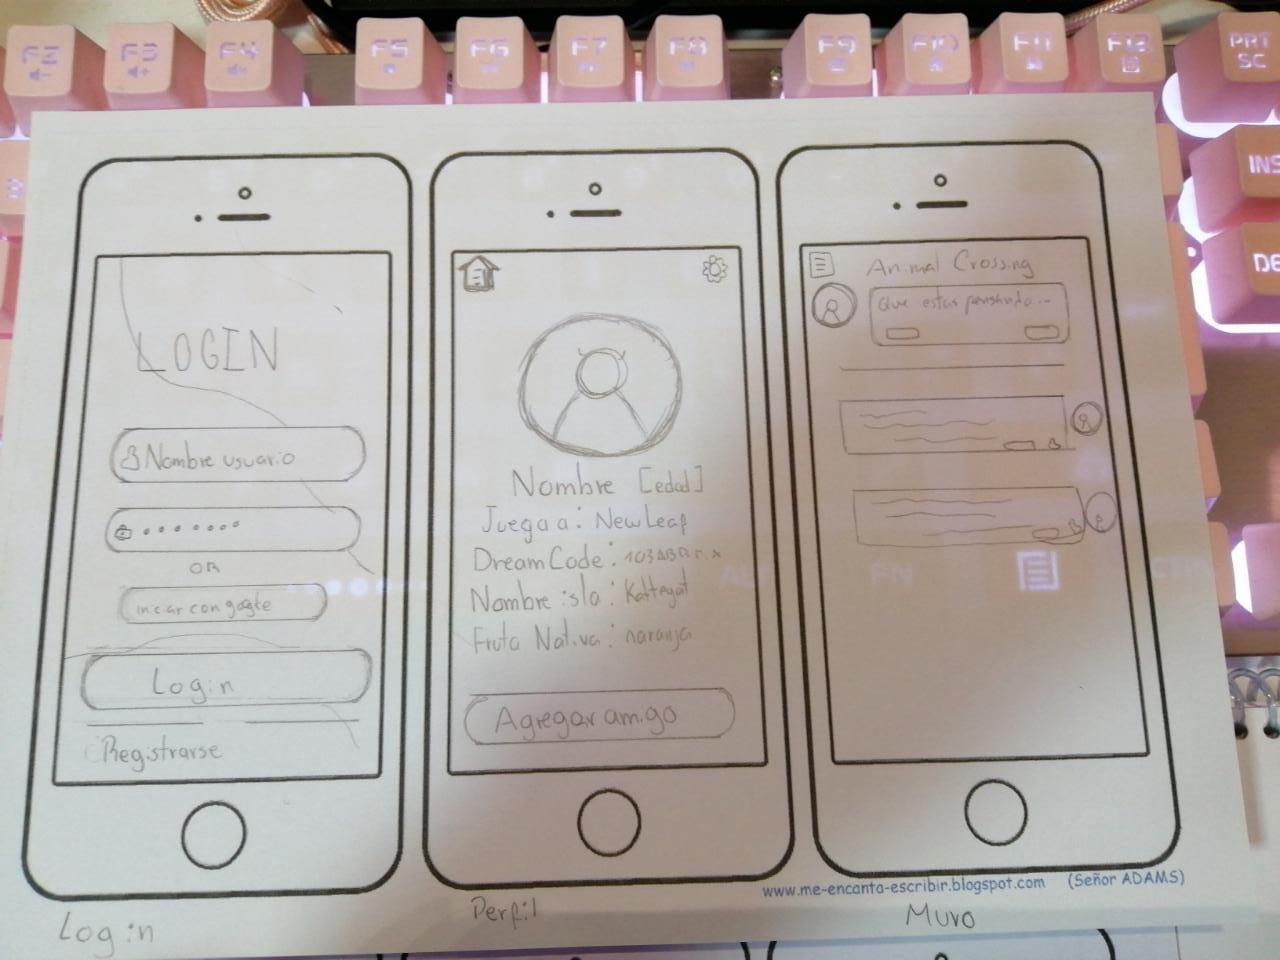 F2
F3
F4
F5
F6
F7
F8
F9
F10
F11
F12
PRT
SC
INS
DE
LOGIN
Nombre usuario
OR
iniciar con google
Login
Registrarse
Login
Nombre [edad]
Juega a: New Leaf
DreamCode:
Nombre isla: Kattegat
Fruta Nativa: naranja
Agregar amigo
Perfil
Animal Crossing
Que estas pensando...
ALT
FN
Muro
www.me-encanta-escribir.blogspot.com (Señor ADAMS)